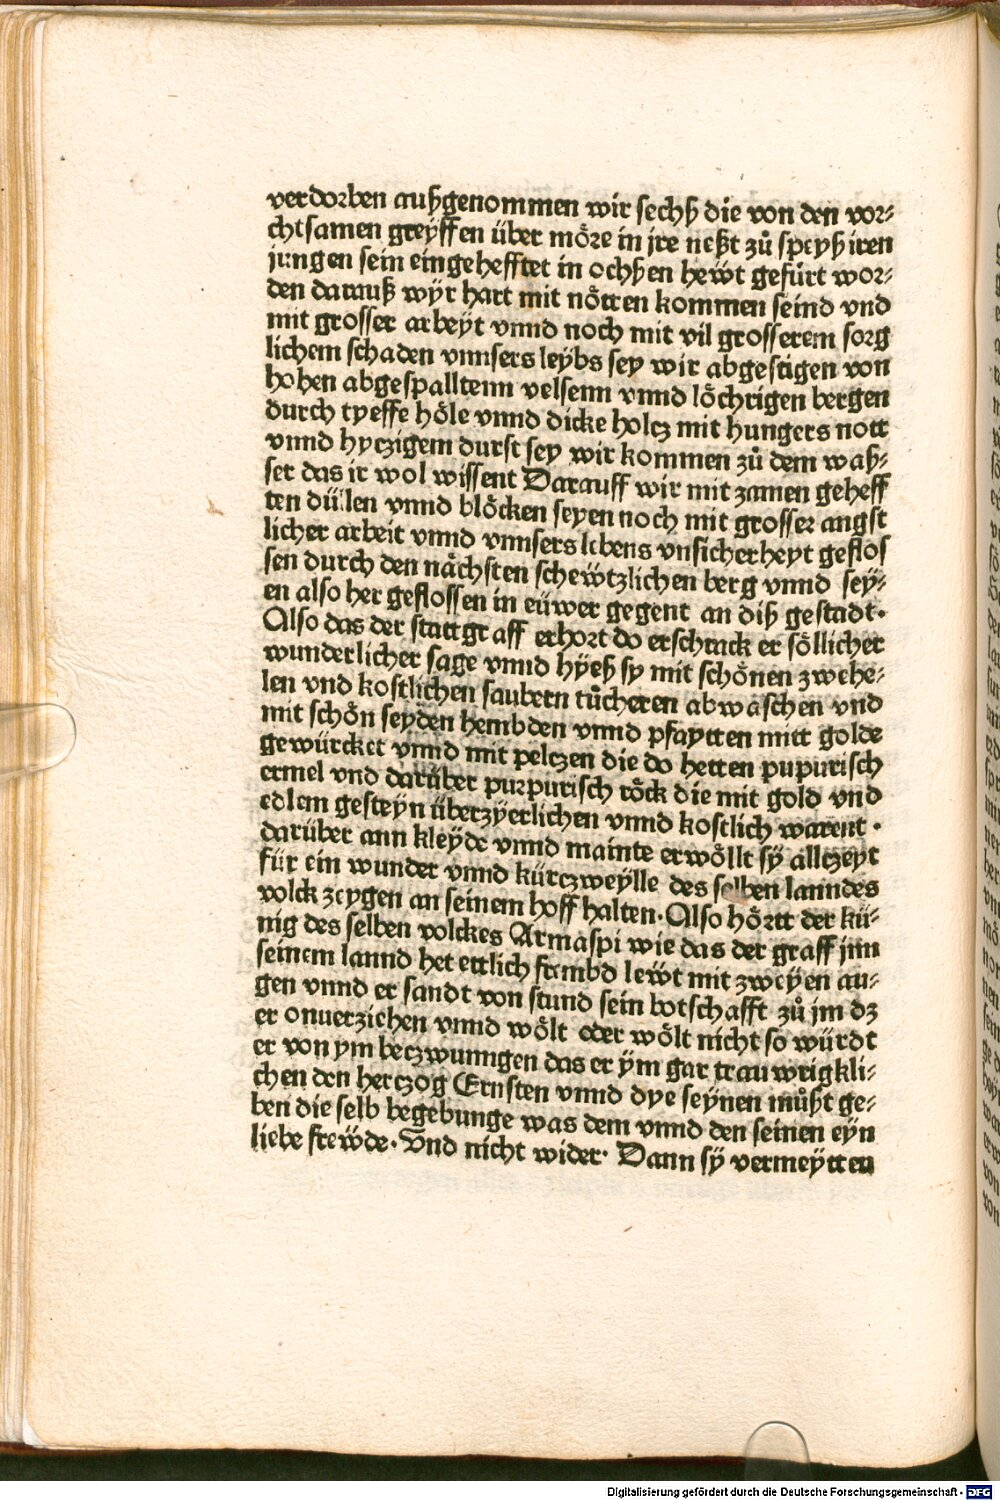 verdorben außgenommen wir sechß die von den vor⸗
chtsamen greÿffen über möre in jre neßt zů speyß iren
jungen sein eingehefftet in ochßen hewt gefůrt wor⸗
den darauß wÿr hart mit nötten kommen seind vnd
mit grosser arbeÿt vnnd noch mit vil grosserem sorg
lichem schaden vnnsers leÿbs sey wir abgestigen von
hohen abgespalltenn velsenn vnnd löchrigen bergen
durch tyeffe höle vnnd dicke holcz mit hungers nott
vnnd hyczigem durst sey wir kommen zů dem waß⸗
ser das ir wol wissent Darauff wir mit zamen geheff
ten düllen vnnd blöcken seyen noch mit grosser angst
licher arbeit vnnd vnnsers lebens vnsicherheyt geflos
sen durch den nächsten schewtzlichen berg vnnd seÿ⸗
en also her geflossen in eüwer gegent an diß gestadt.
Also das der stattgraff erhort do erschrack er söllicher
wunderlicher sage vnnd hÿeß sy mit schönen zwehe⸗
len vnd kostlichen saubern tůcheren abwaschen vnd
mit schön seyden hembden vnnd pfaytten mitt golde
gewürcket vnnd mit pelczen die do hetten pupurisch
ermel vnd darüber purpurisch röck die mit gold vnd
edlem gesteÿn überzÿerlichen vnnd kostlich warent.
darüber ann kleÿde vnnd mainte erwöllt sÿ allczeyt
für ein wunder vnnd kürczweÿlle des selben lanndes
volck zeygen an seinem hoff halten. Also hörtt der kü⸗
nig des selben volckes Armaspi wie das der graff jnn
seinem lannd het ettlich frembd lewt mit zweyen au⸗
gen vnnd er sandt von stund sein botschafft zů jm dz
er onuerziehen vnnd wölt oder wölt nicht so würdt
er von ym beczwunngen das er ÿm gar trauwrigkli⸗
chen den herczog Ernsten vnnd dye seynen můßt ge⸗
ben die selb begebunge was dem vnnd den seinen eyn
liebe frewde. Vnd nicht wider. Dann sÿ vermeÿtten
Digitalisierung gefördert durch die Deutsche Forschungsgemeinschaft - DFG